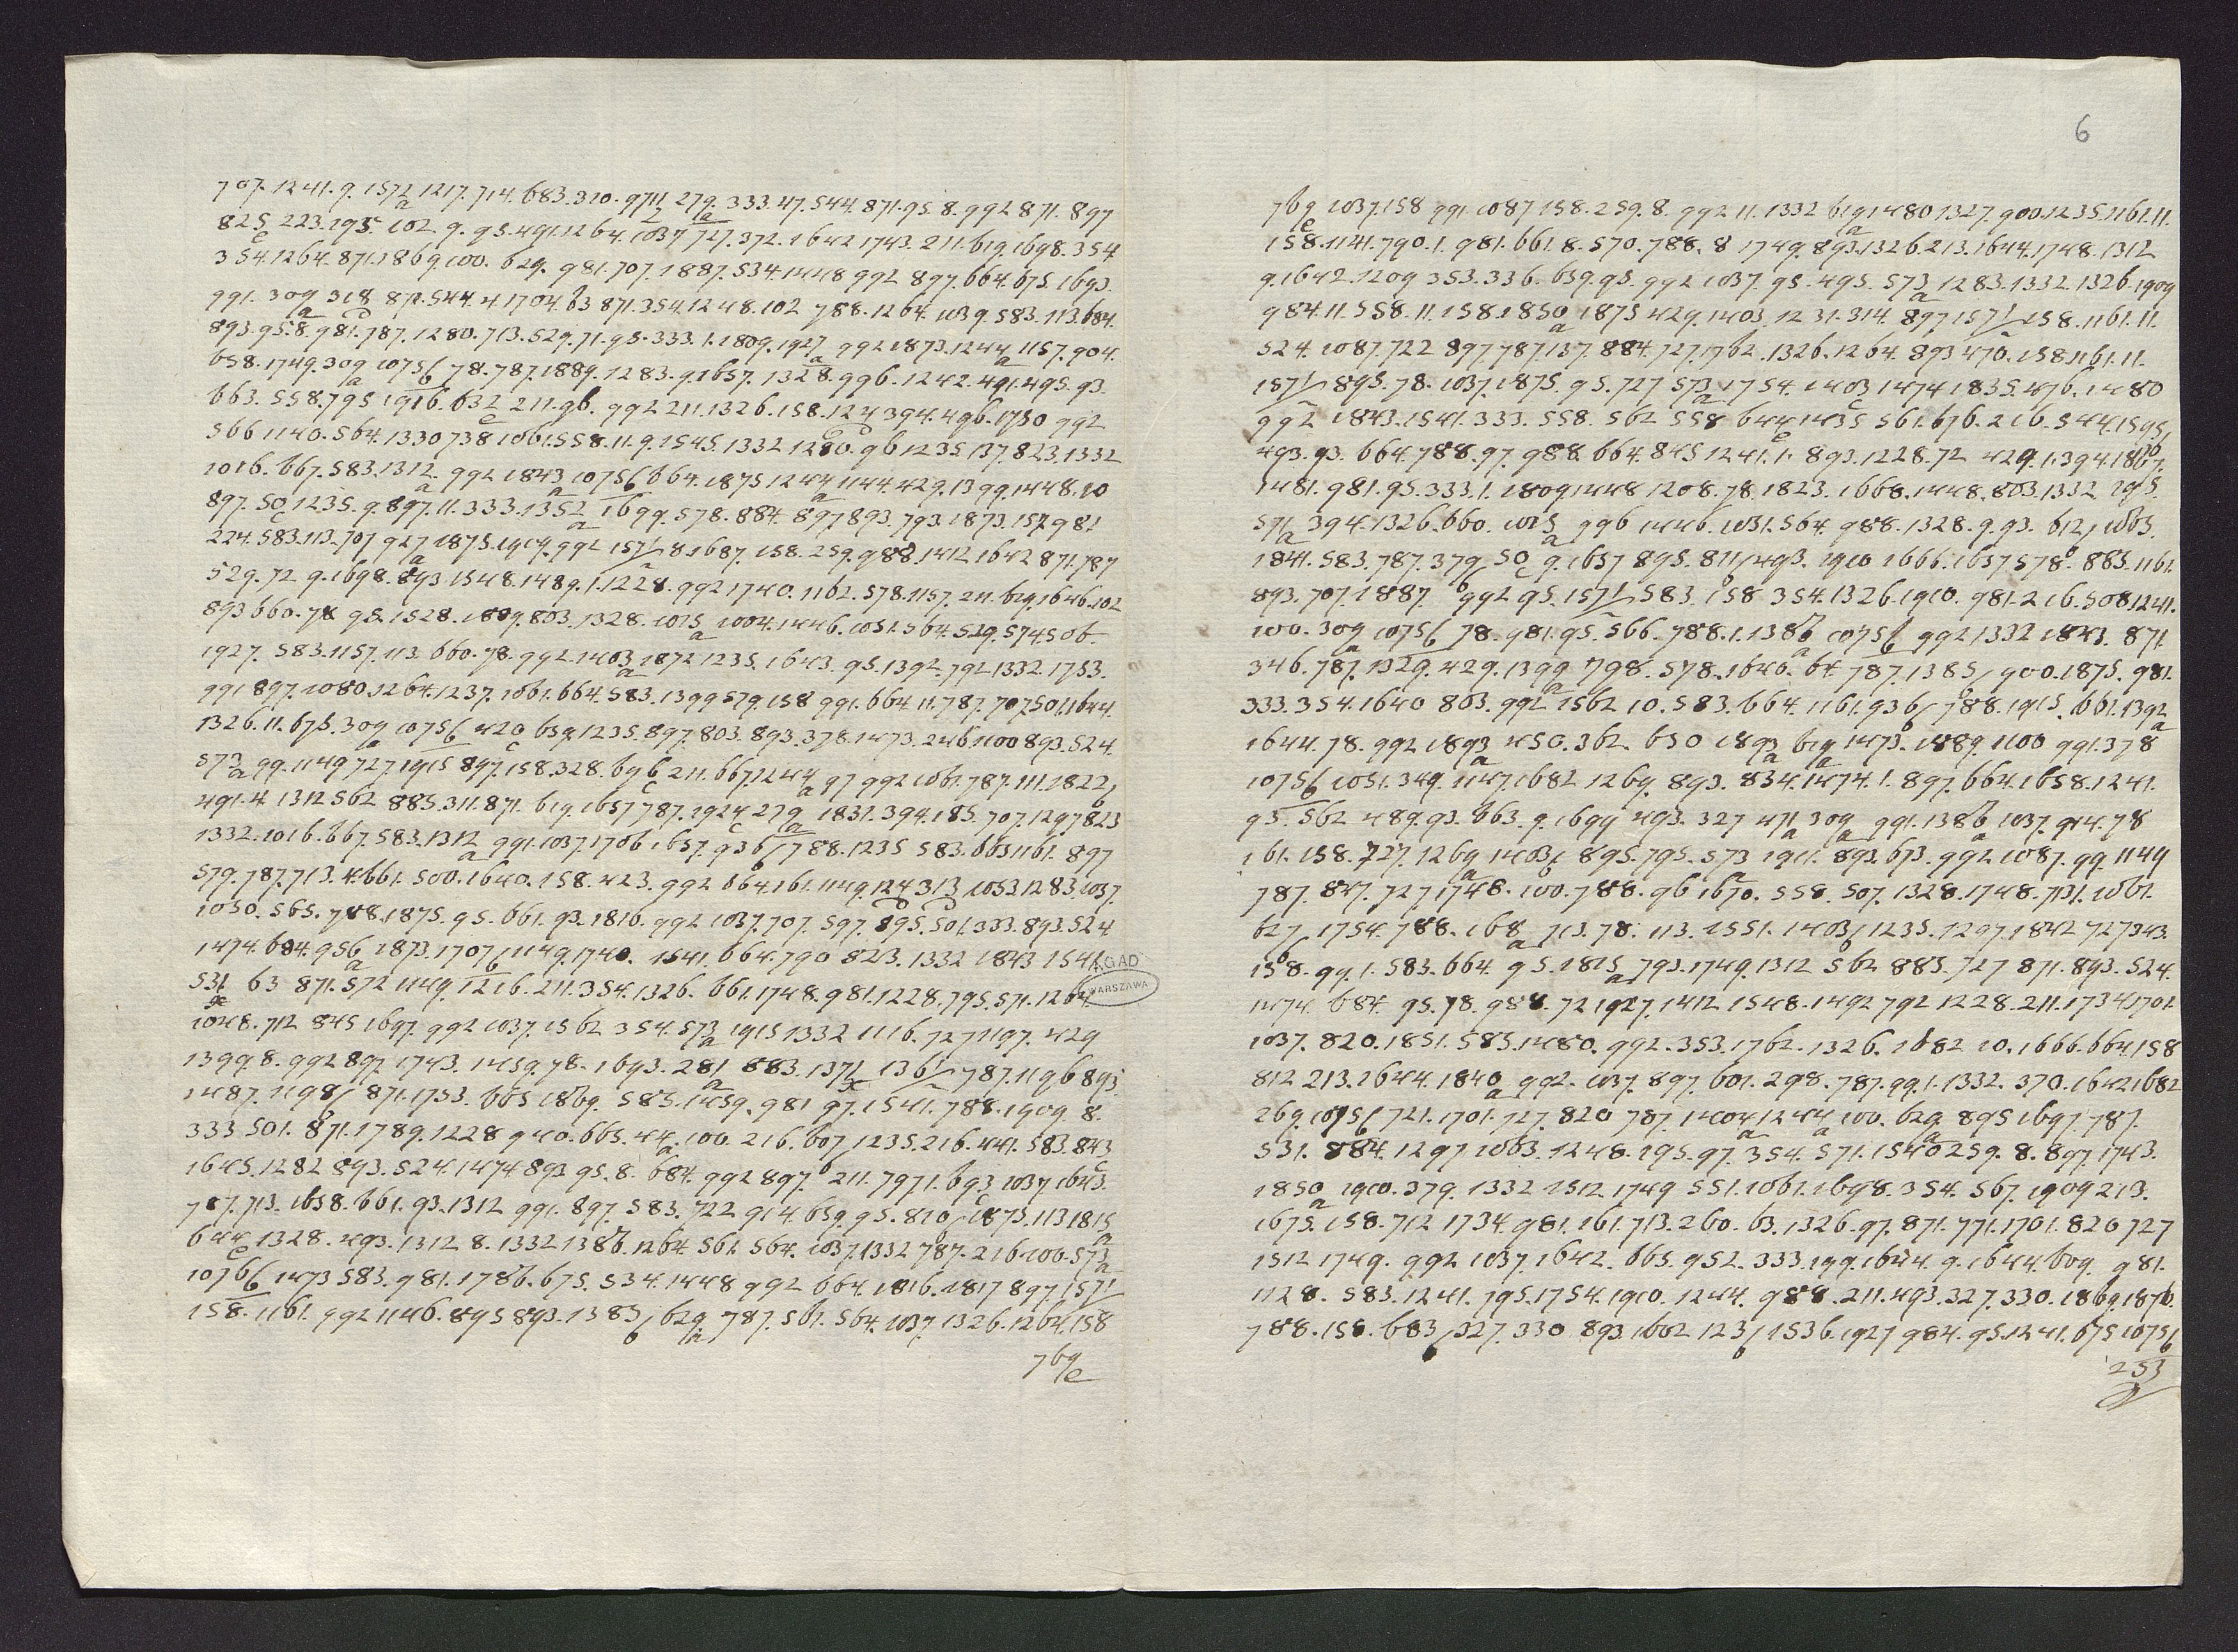 707. 1241. 9. 1572 1217. 714. 683. 320. 9711 279. 333. 47. 544. 871. 95. 8. 992 871. 897
825 223. 195. 102 9. 95. 491. 1264. 1037 727. 372. 1642 1743. 211. 619. 1698. 354
354. 1264. 871. 1869. 100. 629. 981. 707. 1887. 534. 1448 992 897. 664. 675. 1693.
991. 309 318 871. 544. 4. 1704. 63 871. 354. 1248. 102 788. 1264. 1039. 583. 113. 684.
893. 95. 8. 981. 787. 1280. 713. 529. 71. 95. 333. 1. 1809. 1927 992 1873. 1244 1157. 904.
658. 1749. 309 1075 6 78. 787. 1889. 1283. 9. 1657. 1328. 996. 1242. 491. 495. 93.
663. 558. 795 1916. 632 211. 96. 992 211. 1326. 158. 124 394. 496. 1750 992
566 1140. 564. 1330 738 1061. 558. 11. 9. 1545. 1332 1280. 96 1235 137. 823. 1332
1016. 667. 583. 1312 992 1843 1075 6 664. 1875 1244 1144. 429. 1399. 1448. 10
897. 50 1235. 9. 897. 11. 333. 1352 1699. 578. 884. 897 893. 793. 1873. 157. 981
224. 583. 113. 707 927 1875. 1914. 992 157 8. 1687. 158. 259. 988. 1412 1642 871. 787
529. 72 9. 1698. 893 1548. 1489. 1. 1228. 992 1740. 1162. 578. 1157. 211. 629. 1646. 102
893 660. 78 95. 1528. 1809. 803. 1328. 1015 1004. 1446. 1051. 564. 529. 574 506
1927. 583. 1157. 113. 660. 78. 992. 1403 1872 1235. 1643. 95. 1392. 792 1332. 1753.
991 897. 1080. 1264. 1237. 1061. 664. 583. 1399 579. 158 991. 664. 11. 787. 707. 501. 1644.
1326. 11. 675. 309 1075 6 420 659. 1235. 897. 803. 893. 378. 1473. 246. 1100 893. 524.
573 99. 1149 727. 1915 897. 158. 328. 696 211. 667. 1244 97 992 1061. 787. 111. 1822
491. 4. 1312 562 885. 311. 871. 619. 1657 787. 1924 279 1831. 394. 185. 707. 1297 823
1332. 1016. 667. 583. 1312 991. 1037. 1706 1657. 936 788. 1235 583. 665 1161. 897
579. 787. 713. 4. 661. 500. 1640. 158. 423. 992 664. 161. 1149. 124 313 1053. 1283. 1037.
1050. 565. 788. 1875. 95. 661. 93. 1810. 992 1037. 707. 597. 895. 501. 333. 893. 524
1474. 684. 956 1873. 1707 1149. 1740. 1541. 664. 790 823. 1332 1843 1541
531 63 871. 572 1149. 1216. 211. 354. 1326. 661. 1748. 981. 1228. 795. 571. 1264
AGAD WARSZAWA
1048. 712 845 1697. 992 1037. 1562 354. 573 1915 1332 1116. 727 1197. 429
1399. 8. 992 897 1743. 1459. 78. 1693. 281 883. 1371 136 787. 1196 893.
1487. 1198 871. 1753. 665 1869. 585. 1459. 981 97. 1541. 788. 1909 8.
333 501. 871. 1789. 1228 940. 665. 44. 100. 216. 607 1235. 216. 441. 583. 843
1645. 1282 893. 524. 1474 893 95. 8. 684. 992 897. 211. 797 1. 693 1037 1643.
787. 713. 1658. 661. 93. 1312 991. 897. 583. 722 914. 659. 95. 810 1873. 113 1815
644 1328. 493. 1312 8. 1332 1386. 1264 561. 564. 1037. 1332 787. 216. 100. 573
1076 6 1473 583. 981. 1786. 675. 534. 1448 992 664. 1816. 1817 897. 157
158. 1161. 992 1146. 895 893. 1385 629. 787. 561. 564. 1037. 1326. 1264. 158
769
6
769 1037. 158 991. 1087 158. 259. 8. 992 11. 1332 619 1480 1327. 900. 1235. 1161. 11.
158. 1141. 790. 1. 981. 661. 8. 570. 788. 8 1749. 893. 1326. 213. 1644. 1748. 1312
9. 1642. 1209 353. 336. 659. 95. 992 1037. 95. 495. 573 1283. 1332. 1326. 1909
984. 11. 558. 11. 158. 1850 1875 429. 1403. 1231. 314. 897 157 158. 1161. 11.
524. 1087. 722 897 787. 137. 884. 727. 1762. 1326. 1264. 893 470. 158 1161. 11.
157 895. 78. 1037. 1875. 95. 727 573 1754. 1403 1474 1835. 476. 1480
992 1843. 1541. 333. 558. 562 558 644 1435 561. 676. 216. 544. 1595
493. 93. 664. 788. 97. 988. 664. 845 1241. 1. 893. 1228. 72 429. 1. 394. 1867.
1481. 981. 95. 333. 1. 1809 1448 1208. 78. 1823. 1668. 1448. 803. 1332 195.
571 394. 1326. 660. 1015 996 1446. 1051. 564. 988. 1328. 9. 93. 612 1065.
1841. 583. 787. 379 50 9. 1657 895. 811 493. 1910 1666. 1657 578. 885. 1161.
893. 707. 1887. 992 95. 157 583. 158 354. 1326. 1910. 981. 216. 508 1241.
100. 309 1075 6 78. 981. 95. 566. 788. 1. 1386 1075 6 992 1332 1843. 871.
346. 787. 1329. 429. 1399 798. 578. 1646. 64 787. 1385 900. 1875. 981.
333. 354. 1640 863. 992 1562 10. 583. 664. 1161. 936 788. 1915. 661. 1392
1644. 78. 992 1893 450. 362. 650 1893 619 1473. 1889. 1100 991. 378
1075 6 1051. 349. 1147. 1682 1269. 893. 834. 1474. 1. 897. 664. 1658. 1241.
95. 562 489. 93. 663. 9. 1699 493. 327 471 309 991. 1386 1037. 914. 78
161. 158. 727. 1269 1403 895. 795. 573 1911. 893. 673. 992 1087. 99. 1149
787. 847. 727 1748. 100. 788. 96 1670. 558. 507. 1328. 1748. 7131. 1061.
627 1754. 788. 168 713. 78. 113. 1551. 1403 1235. 1297. 1842 727 343.
158. 99. 1. 583. 664. 95. 1815 793. 1749. 1312 562 885. 727 871. 893. 524.
1474. 684. 95. 78. 988. 72 1927. 1412 1548. 1492 792 1228. 211. 1734 1701.
1037. 820. 1851. 585. 1480. 992. 353. 1762. 1326. 1682 10. 1666. 664. 158
812 213. 1644. 1840 992. 1037. 897. 601. 298. 787. 99. 1. 1332. 370. 1642 1682
269. 1075 6 721. 1701. 727. 820 787. 1404 1244 100. 629. 895 1697. 787.
531. 884. 1297 1063. 1248. 195. 97. 354. 571. 1540 259. 8. 897. 1743.
1850 1910. 379. 1332 1512 1749 551. 1061. 1698. 354. 567. 1909 213.
1675. 158. 712 1734. 981. 161. 713. 260. 63. 1326. 97. 871. 771. 1701. 820 727
1512 1749. 992 1037. 1642. 665. 952. 333. 199. 1644. 9. 1644. 609. 981.
1128. 583. 1241. 795. 1754. 1910. 1244. 988. 211. 493. 327. 330. 1869. 1876.
788. 158. 683 327. 330 893 1602 123 1536. 1927 984. 95. 1241. 675 1075 6
253